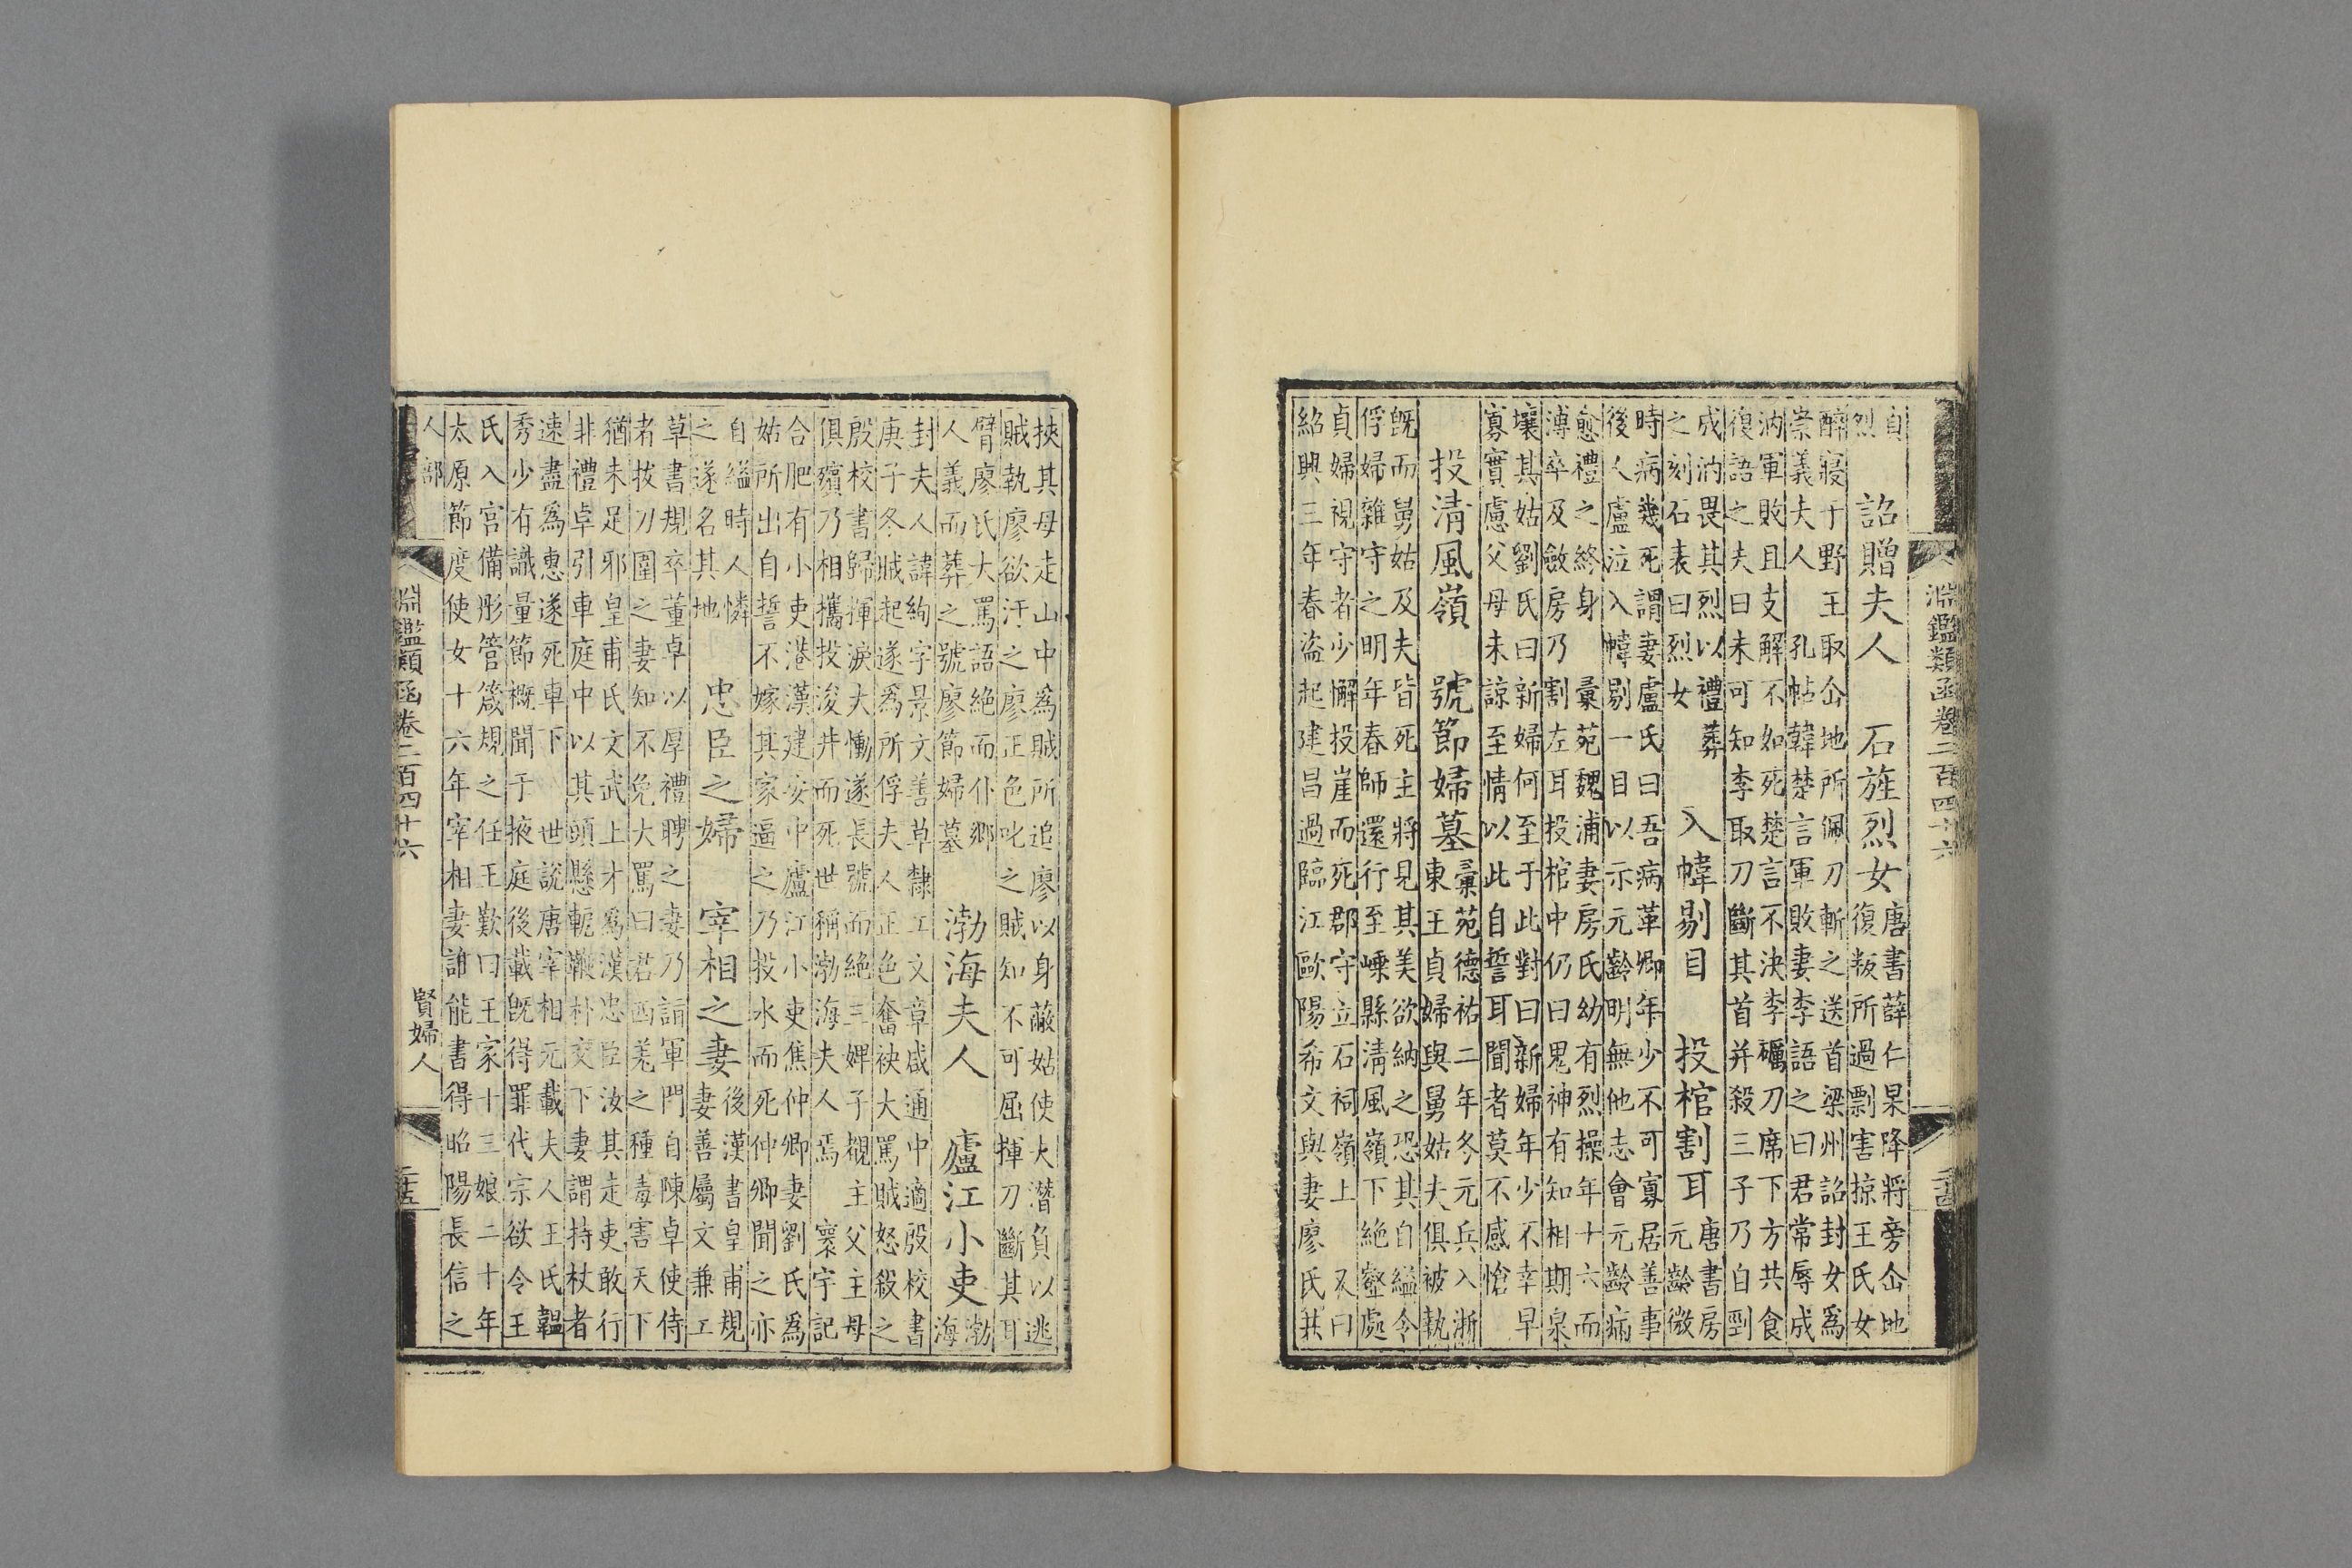 淵鑑類函卷二百四十六 二十四
貞
烈
詔贈夫人 石旌烈女
唐書薛仁杲降將旁仚地
復叛所過剽害掠王氏女
醉寢于野王取仚地所佩刀斬之送首梁州詔封女爲
崇義夫人 孔帖韓楚言軍敗妻李語之曰君常辱成
汭軍敗且支解不如死楚言不決李礪刀席下方共食
復語之夫曰未可知李取刀斷其首并殺三子乃自剄
成汭畏其烈以禮葬
之刻石表曰烈女
入幃剔目 投棺割耳
唐書房
元齡微
時病幾死謂妻盧氏曰吾病革卿年少不可寡居善事
後人盧泣入幃剔一目以示元齡明無他志會元齡病
愈禮之終身 彙苑魏浦妻房氏幼有烈操年十六而
溥卒及斂房乃割左耳投棺中仍曰鬼神有知相期泉
壤其姑劉氏曰新婦何至于此對曰新婦年少不幸早
寡實慮父母未諒至情以此自誓耳聞者莫不感愴
投清風嶺 號節婦墓
彙苑德祐二年冬元兵入浙
東王貞婦與舅姑夫俱被執
既而舅姑及夫皆死主將見其美欲納之恐其自縊令
俘婦雜守之明年春師還行至嵊縣清風嶺下絶壑處
貞婦視守者少懈投崖而死郡守立石祠嶺上 又曰
紹興三年春盜起建昌過臨江歐陽希文與妻廖氏共
挾其母走山中爲賊所追廖以身蔽姑使夫潛負以逃
賊執廖欲汙之廖正色叱之賊知不可屈揮刀斷其耳
臂廖氏大罵語絶而仆鄉
人義而葬之號廖節婦墓
渤海夫人 廬江小吏
渤
海
封夫人諱絢字景文善草隸工文章咸通中適殷校書
庚子冬賊起遂爲所俘夫人正色奮袂大罵賊怒殺之
殷校書歸揮淚大慟遂長號而絶三婢子櫬主父主母
俱殯乃相攜投浚井而死世稱渤海夫人焉 寰宇記
合肥有小吏港漢建安中廬江小吏焦仲卿妻劉氏爲
姑所出自誓不嫁其家逼之乃投水而死仲卿聞之亦
自縊時人憐
之遂名其地
忠臣之婦 宰相之妻
後漢書皇甫規
妻善屬文兼工
草書規卒董卓以厚禮聘之妻乃詣軍門自陳卓使侍
者拔刀圍之妻知不免大罵曰君西羌之種毒害天下
猶未足邪皇甫氏文武上才爲漢忠臣汝其走吏敢行
非禮卓引車庭中以其頭懸軛鞭朴交下妻謂持杖者
速盡爲惠遂死車下 世說唐宰相元載夫人王氏韞
秀少有識量節概聞于掖庭後載既得罪代宗欲令王
氏入宮備彤管箴規之任王歎曰王家十三娘二十年
太原節度使女十六年宰相妻誰能書得昭陽長信之
人部 淵鑑類函卷二百四十六 賢婦人 二十五